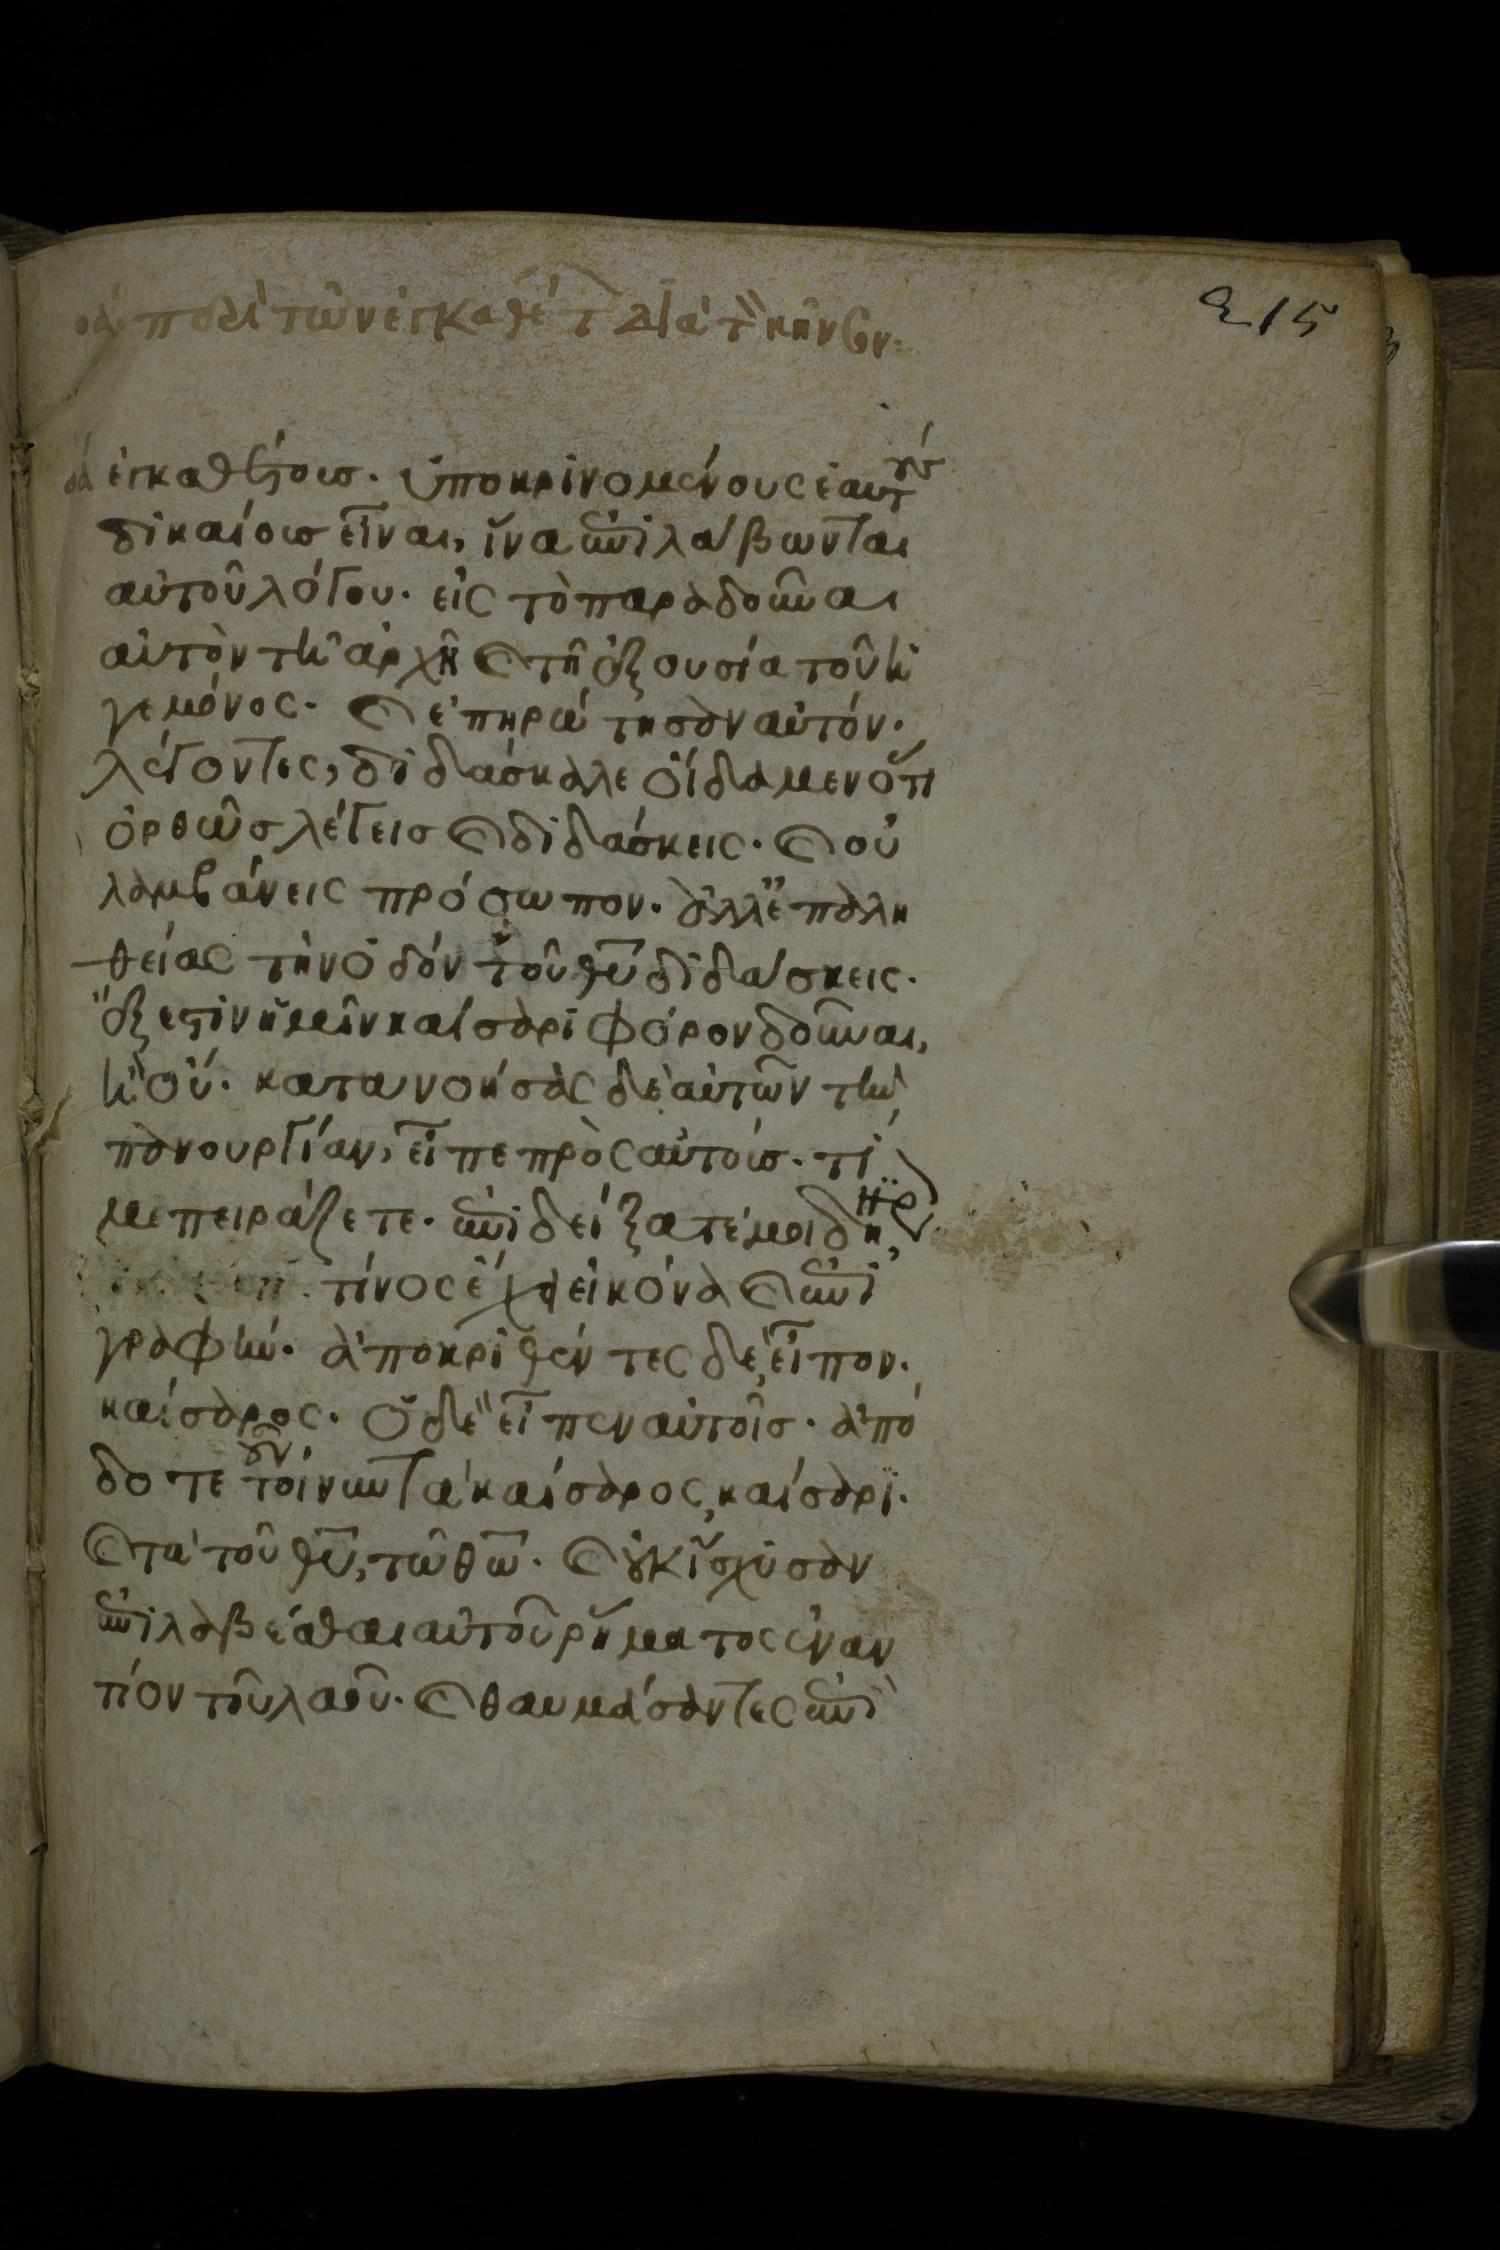 οα περι των εγκαθετ δια τ κηνσον
215
οα εγκαθέτους· ὑποκρινομένους ἑαυτούς
δικαίους εἶναι, ἵνα ἐπιλάβωνται
αὐτοῦ λόγου· εἰς τὸ παραδοῦναι
αὐτὸν τῆ ἀρχῆ καὶ τῆ ἐξουσία τοῦ ἡ
γεμόνος· καὶ ἐπηρώτησαν αὐτόν·
λέγοντες, διδάσκαλε οἴδαμεν ὅτι
ὀρθῶς λέγεις καὶ διδάσκεις· καὶ οὐ
λαμβάνεις πρόσωπον· ἀλλ' ἐπ' ἀλη
θείας τὴν ὁδόν τοῦ θυ διδάσκεις·
ἔξεστιν ἡμῖν καίσαρι φόρον δοῦναι,
ἢ οὔ· κατανοήσας δὲ αὐτῶν τὴν
πανουργίαν, εἶπε πρὸς αὐτούς· τί
με πειράζετε· ἐπιδείξατέ μοι δη
νρ
τίνος ἔχει εἰκόνα καὶ ἐπι
γραφήν· ἀποκριθέντες δὲ, εἶπον·
καίσαρος· ὁ δὲ εἶπεν αὐτοῖς· ἀπό
δοτε τοίνυν τὰ καίσαρος, καίσαρι·
οῦν
καὶ τὰ τοῦ θυ, τῶ θω· καὶ οὐκ ἴσχυσαν
ἐπιλαβέσθαι αὐτοῦ ῥήματος ἐναν
τίον τοῦ λαοῦ· καὶ θαυμάσαντες ἐπὶ